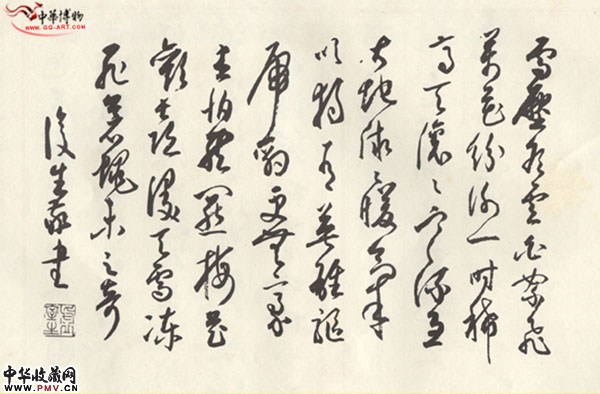 中华博物
WWW.GG-ART.COM
雪压冬云白絮飞
万花纷谢一时稀
高天滚々寒流急
大地微々暖气
吹独有英雄驱
虎豹更无豪
杰怕熊罴梅花
欢喜漫天雪冻
死苍蝇未足奇
復生 书
中华收藏网
WWW.PMV.CN